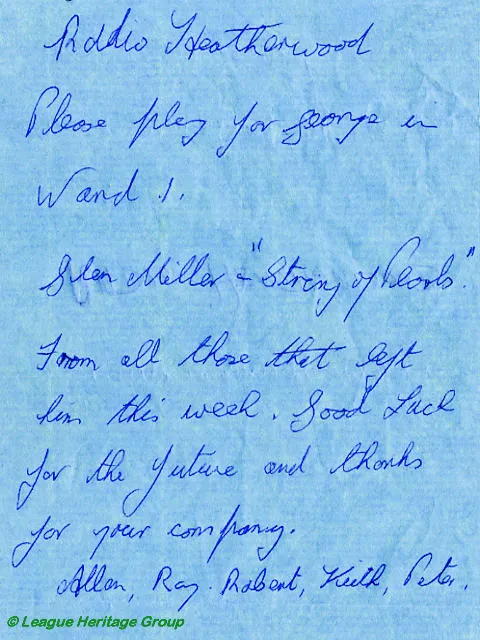 Radio Heatherwood
Please play for George in
Ward 1.
Glen Miller - "String of Pearls."
From all those that left
him this week. Good Luck
for the future and thanks
for your company.
Allen, Ray. Robert, Keith, Peter.
© League Heritage Group